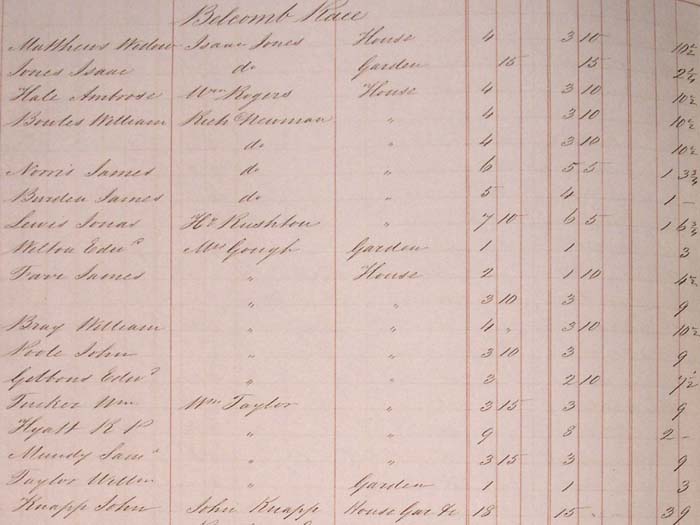 Belcomb Place
Matthews Widow Isaac Jones House 4 3 10 10½
Jones Isaac do Garden 15 15 2¼
Hale Ambrose Wm Rogers House 4 3 10 10½
Bowles William Rich Newman " 4 3 10 10½
do " 4 3 10 10½
Norris James do " 6 5 5 1 3¾
Burden James do " 5 4 1 -
Lewis Jonas Hy Rushton " 7 10 6 5 1 6¾
Wilton Edwd Mrs Gough Garden 1 1 3
James " House 2 1 10 4½
" " 3 10 3 9
Bray William " " 4 " 3 10 10½
Noole John " " 3 10 3 9
Gibbons Edwd " " 3 2 10 7½
Tucker Wm Wm Taylor " 3 15 3 9
Hyatt R P " " 9 8 2 -
Mundy Saml " " 3 15 3 9
Taylor " Garden 1 1 3
Knapp John John Knapp House Gar &c 18 15 - 3 9